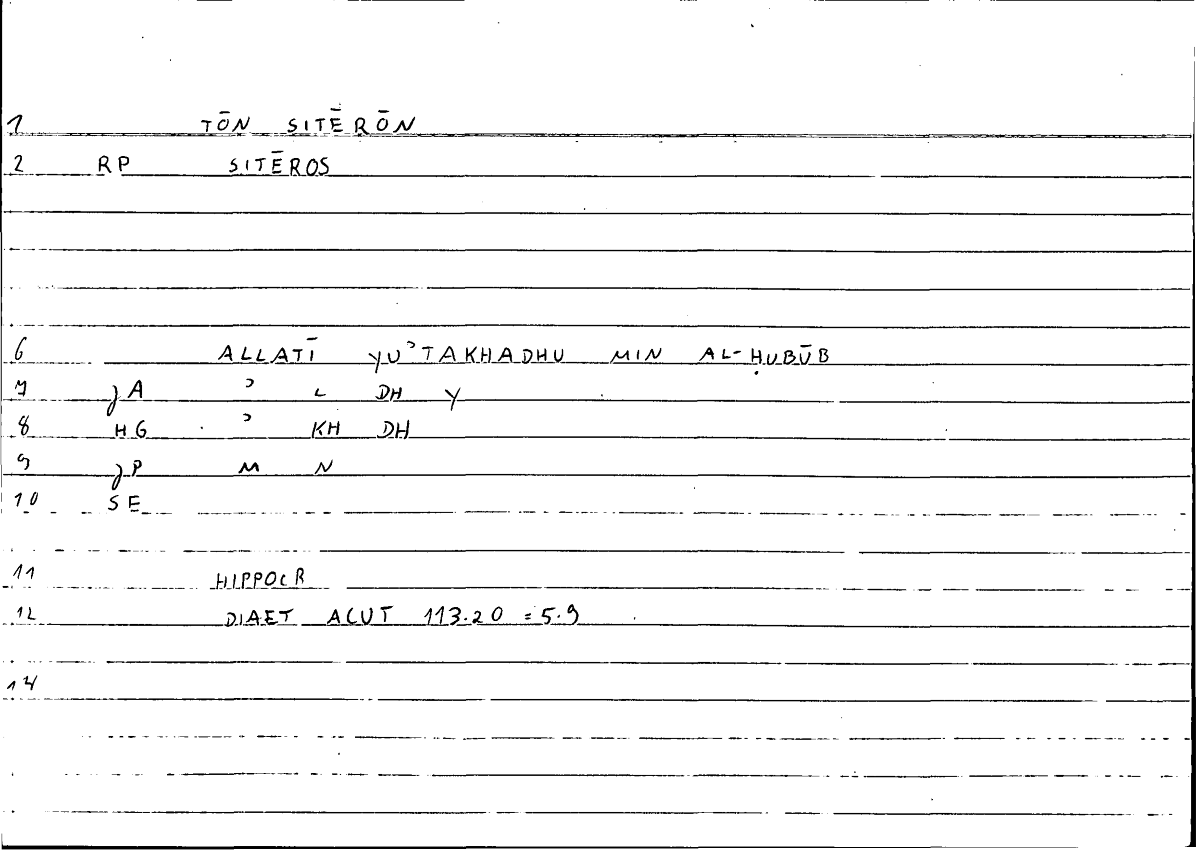 1 TŌN SITĒRŌN
2 RP SITĒROS
6 ALLATĪ YUʾTAKHADHU MIN AL-ḤUBŪB
7 JA ʾ L DH Y
8 HG ʾ KH DH
9 JP M N
10 SE
11 HIPPOCR
12 DIAET ACUT 113.20 = 5.9
14